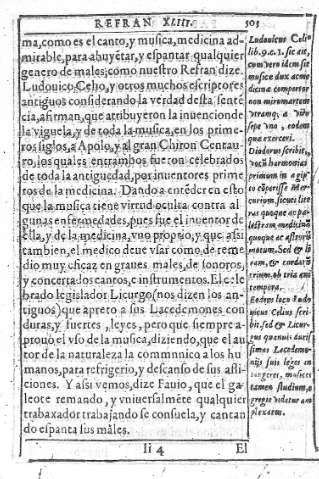 REFRAN XLIII. 503
ma, como es el canto, y musica, medicina ad-
mirable, para ahuyẽtar, y espantar qualquier
genero de males; como nuestro Refran dize.
Ludouico Celio, y otros muchos escriptores
antiguos considerando la verdad desta sentẽ
cia, afirman, que atribuyeron la inuencion de
la viguela, y de toda la musica, en los prime-
ros siglos, a Apolo, y al gran Chiron Centau-
ro, los quales entrambos fueron celebrados
de toda la antiguedad, por inuentores prime
ros de la medicina. Dando a entẽder en esto
que la musica tiene virtud oculta contra al
gunas enfermedades, pues fue el inuentor de
ella, y de la medicina, vno proprio, y que assi
tambien, el medico deue vsar como de reme
dio muy eficaz en graues males, de sonoros,
y concertados cantos, e instrumentos. El cele
brado legislador Licurgo (nos dizen los an-
tiguos) que apreto a sus Lacedemones con
duras, y fuertes, leyes, pero que siempre a-
prouò el vso de la musica, diziendo, que el au
tor de la naturaleza la commnnico a los hu
manos, para refrigerio, y descanso de sus afli-
ciones. Y assi vemos, dize Fauio, que el ga
leote remando, y vniuersalmẽte qualquier
trabaxador trabajando se consuela, y cantan
do espanta sus males.
Ii 4 El
Ludouicus Celio
lib. 9. c. 3. sic ait,
cum vero idem sit
musice dux ac me
dicina comperior
non mirum artem
vtramq; a
sepe vno, eodem
qua exerceri.
Diodorus scribit,
harmonias
primum in
Mer-
curium, sicuti lite
ras quoque ac pa-
lestram, medicinã
quoque ac astrorũ
motum. Sed & li
ram, & cordarũ
trium, ob tria anni
tempora.
Eodem loco Ludo
uicus Celius scri
bit, sed & Licur-
gus quamuis duris
simas Lacedemo-
nijs suis leges an
iungeret, musices
tamen studium,
gregie videtur am
plexatum.